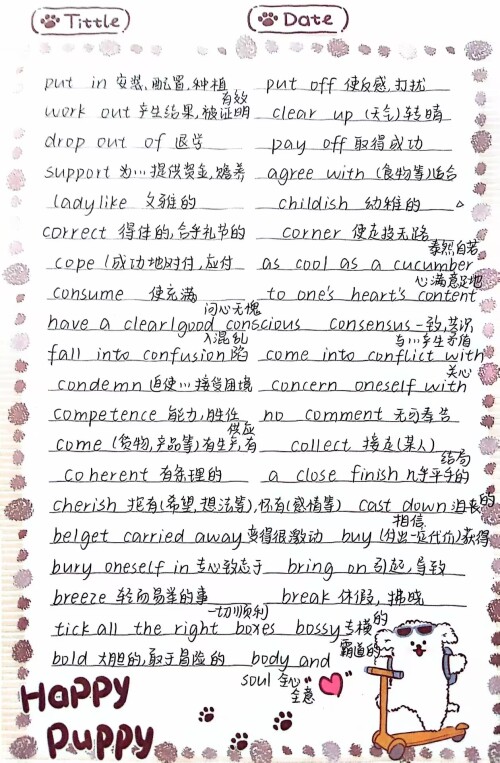 Tittle Date
put in 安装,配置,种植 put off 使反感,打扰
work out 产生结果,有效 被证明 clear up (天气)转晴
drop out of 退学 pay off 取得成功
support 为…提供资金,赡养 agree with (食物等)适合
ladylike 文雅的 childish 幼稚的
correct 得体的,合乎礼节的 corner 使走投无路
cope (成功地)对付,应付 as cool as a cucumber 泰然自若
consume 使充满 to one's heart's content 心满意足地
have a clear/good conscious 问心无愧 consensus 一致,共识
fall into confusion 陷入混乱 come into conflict with 与…产生矛盾
condemn 迫使…接受困境 concern oneself with 关心
competence 能力,胜任 no comment 无可奉告
come (货物,产品等)有生产,有供应 collect 接走(某人)
coherent 有条理的 a close finish 几乎平手的结局
cherish 抱有(希望,想法等),怀有(感情等) cast down 沮丧的
be/get carried away 变得很激动 buy 相信 (付出一定代价)获得
bury oneself in 专心致志于 bring on 引起,导致
breeze 轻而易举的事 break 休假,拂晓
tick all the right boxes 一切顺利 bossy 专横的 霸道的
bold 大胆的,敢于冒险的 body and
soul 全心全意
Happy
Puppy